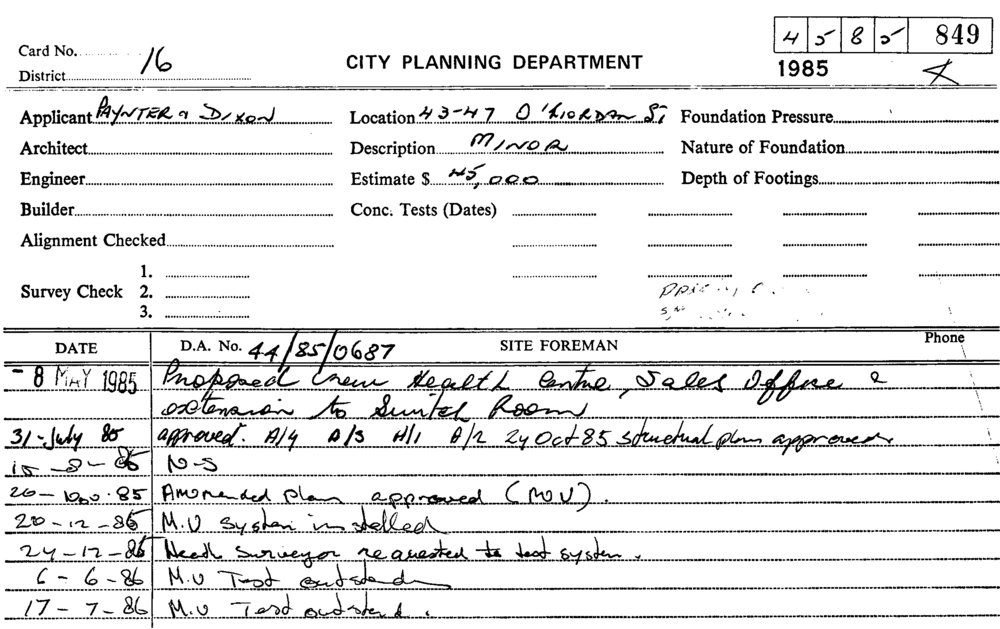 4 5 8 5 849
Card No. 16
CITY PLANNING DEPARTMENT
1985
District
Applicant PAYNTER & DIXON Location 43-47 O'RIORDAN ST, Foundation Pressure
Architect Description MINOR Nature of Foundation
Engineer Estimate $ 45,000 Depth of Footings
Builder Conc. Tests (Dates)
Alignment Checked
1.
Survey Check 2.
3.
DATE D.A. No. 44/85/0687 SITE FOREMAN Phone
- 8 MAY 1985 Proposed Crew Health Centre, Sales Office &
extension to Switch Room
31-July 85 approved. A/4 A/3 H/1 A/2 24 Oct 85 structural plan approved.
15-8-85 N-S
20-Nov.85 Ammended plan approved (M.V).
20-12-85 M.V system installed
24-12-85 Health Surveyor requested to test system.
6-6-86 M.V Test outstanding
17-7-86 M.V Test outstand.